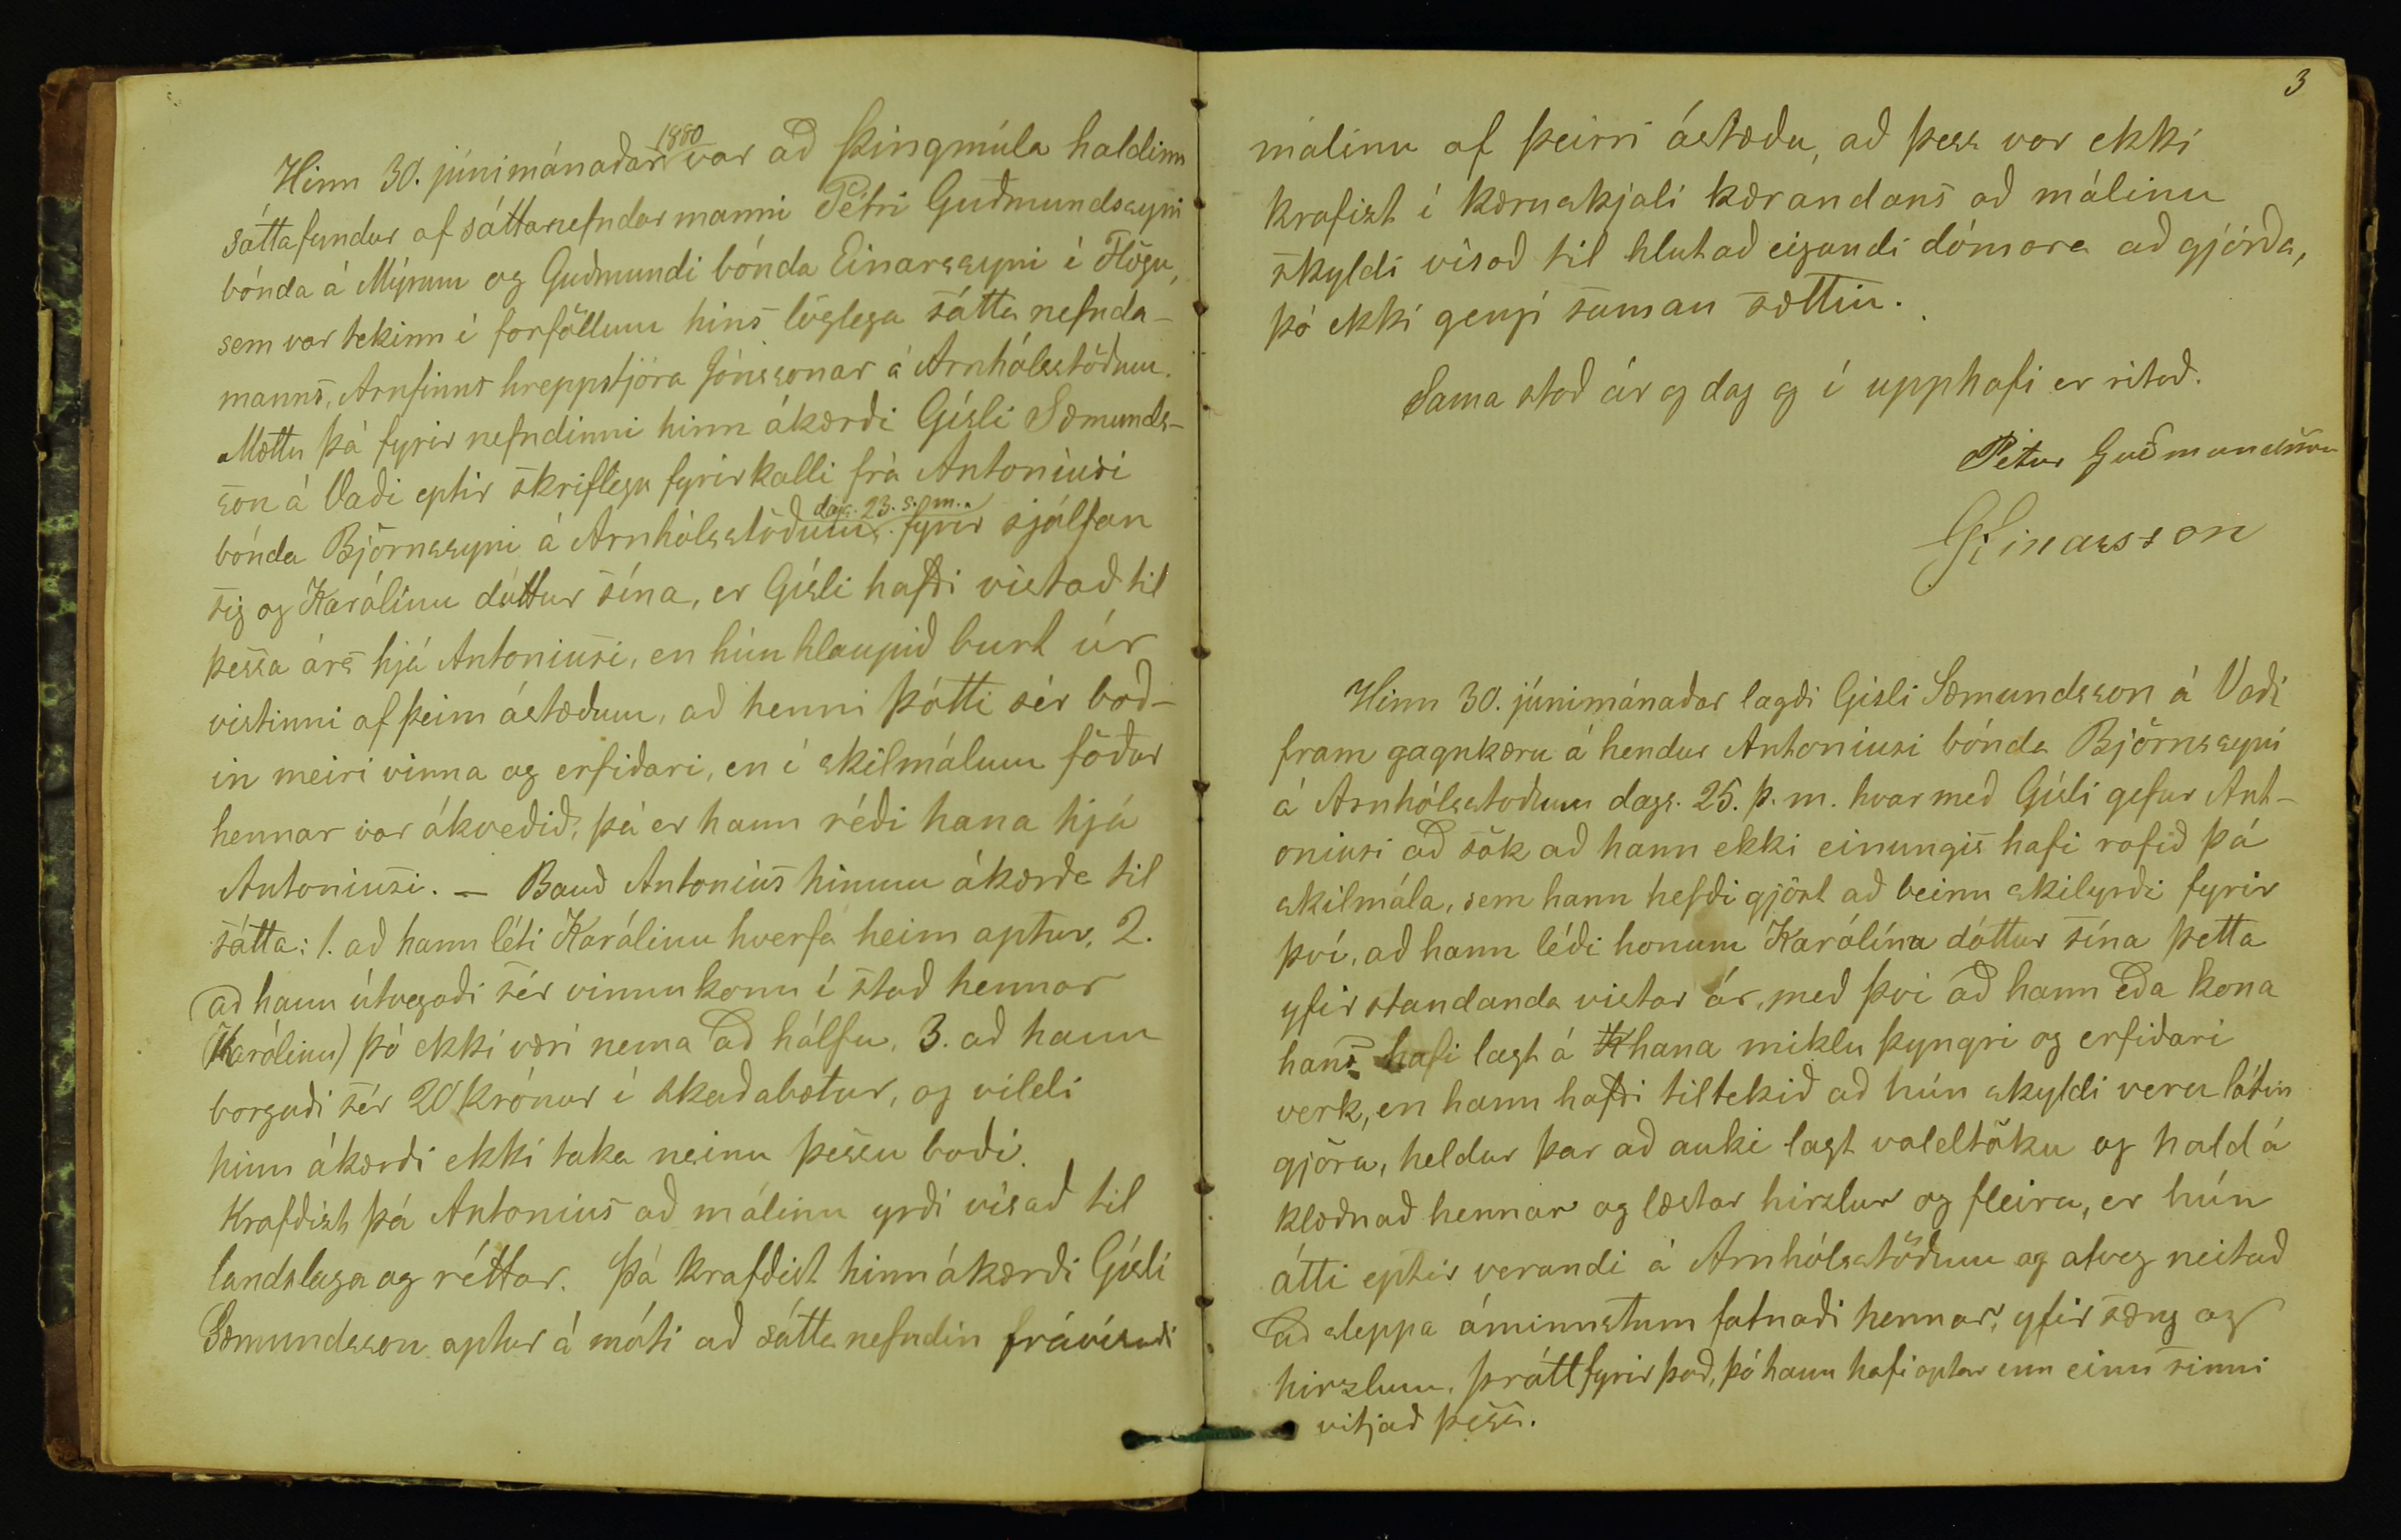 Hinn 30. júnimánaðar 1880 var að Þingmúla haldinn
sáttafundur af sáttanefndarmanni Pétri Guðmundssyni
bónda á Mýrum og Guðmundi bónda Einarssyni í Flögu,
sem var tekinn í forföllum hins löglega sátta nefnda-
manns, Arnfinns hreppstjóra Jónssonar á Arnhólsstöðum.
Mættu þá fyrir nefndinni hinn ákærði Gísli Sæmunds-
son á Vaði eptir skriflegu fyrirkalli frá Antoniusi
bónda Björnssyni á Arnhólsstöðum dags. 23. s. m. fyrir sjálfan
sig og Karólínu dóttur sína, er Gísli hafði vistað til
þessa árs hjá Antoniusi, en hún hlaupið burt úr
vistinni af þeim ástæðum, að henni þótti sér boð-
in meiri vinna og erfiðari, en í skilmálum föður
hennar var ákveðið, þá er hann réði hana hjá
Antoniusi. — Bauð Antonius hinum ákærða til
sátta: 1. að hann léti Karólinu hverfa heim aptur, 2.
að hann útvegaði sér vinnukonu í stað hennar
(Karólinu) þó ekki væri nema að hálfu, 3. að hann
borgaði sér 20 krónur í skaðabætur, og vildi
hinn ákærði ekki taka neinu þessu boði.
Krafðist þá Antonius að málinu yrði vísað til
landslaga og réttar. Þá krafðist hinn ákærði Gísli
Sæmundsson aptur á móti að sáttanefndin frávísaði
3
málinu af þeirri ástæðu, að þess var ekki
krafizt í kæruskjali kærandans að málinu
skyldi vísað til hlutaðeigandi dómara að gjörða,
þó ekki gengi saman sættin.
Sama stað ár og dag og í upphafi er ritað.
Pétur Guðmundsson
G. Einarsson
Hinn 30. júnimánaðar lagði Gisli Sæmundsson á Vaði
fram gagnkæru á hendur Antoniusi bónda Björnssyni
á Arnhólsstoðum dags. 25. þ. m. hvar með Gísli gefur Ant-
oniusi að sök að hann ekki einungis hafi rofið þá
skilmála, sem hann hefði gjört að beinu skilyrði fyrir
því, að hann léði honum Karólína dóttur sína þetta
yfir standanda vistar ár, með því að hann eða kona
hans hafi lagt á hana miklu þyngri og erfiðari
verk, en hann hafði tiltekið að hún skyldi vera látin
gjöra, heldur þar að auki lagt valdtöku og hald á
klæðnað hennar og læstar hirzlur og fleira, er hún
átti eptir verandi á Arnhólsstöðum og alveg neitað
að sleppa áminnstum fatnaði hennar, yfir sæng og
hirzlum, þrátt fyrir það, þó hann hafi optar enn einu sinni
vitjað þess.